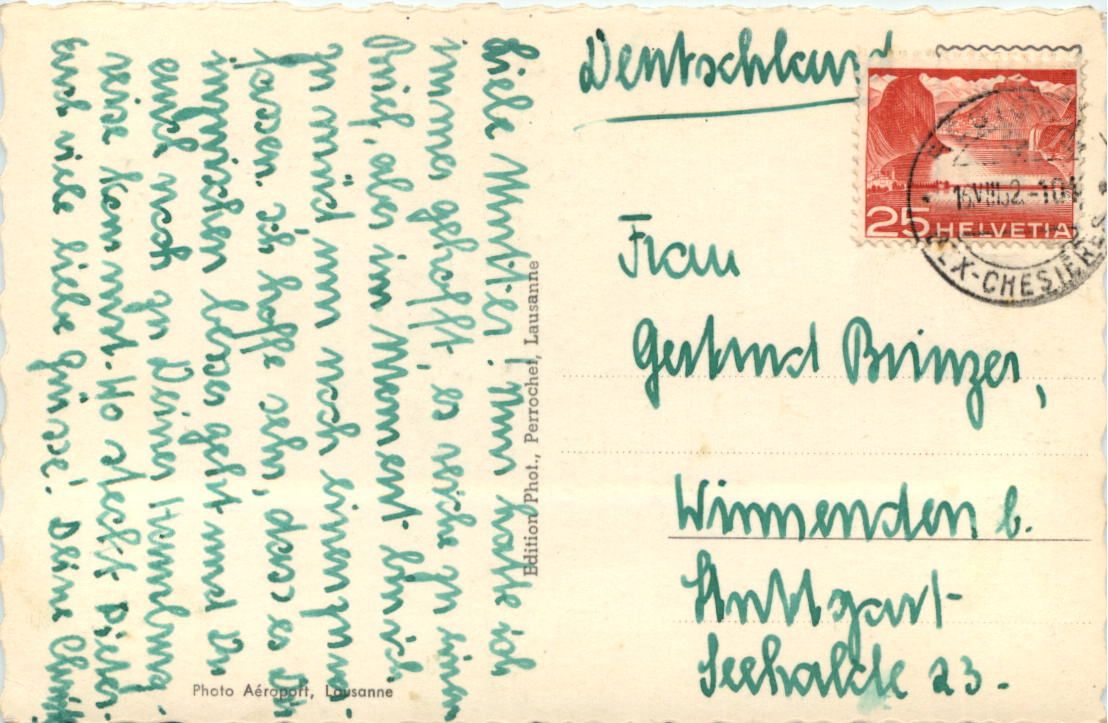 Liebe Mutter! Nun hatte ich
immer gehofft, es reiche zu einem
Brief, aber im Moment
zu schon nun
lassen. Ich hoffe sehr, dass es Dir
inzwischen besser geht und Du
auch noch zu Deiner
reise kommst.
Euch viele liebe Grüsse! Deine
Edition Phot., Perrochet, Lausanne
Photo Aéroport, Lausanne
Deutschland
25 HELVETIA
VIII.52.-10
EX-CHESIÈRES
Frau
Gertrud Brinzer,
Winnenden b.
Stuttgart
Seehalde 23.